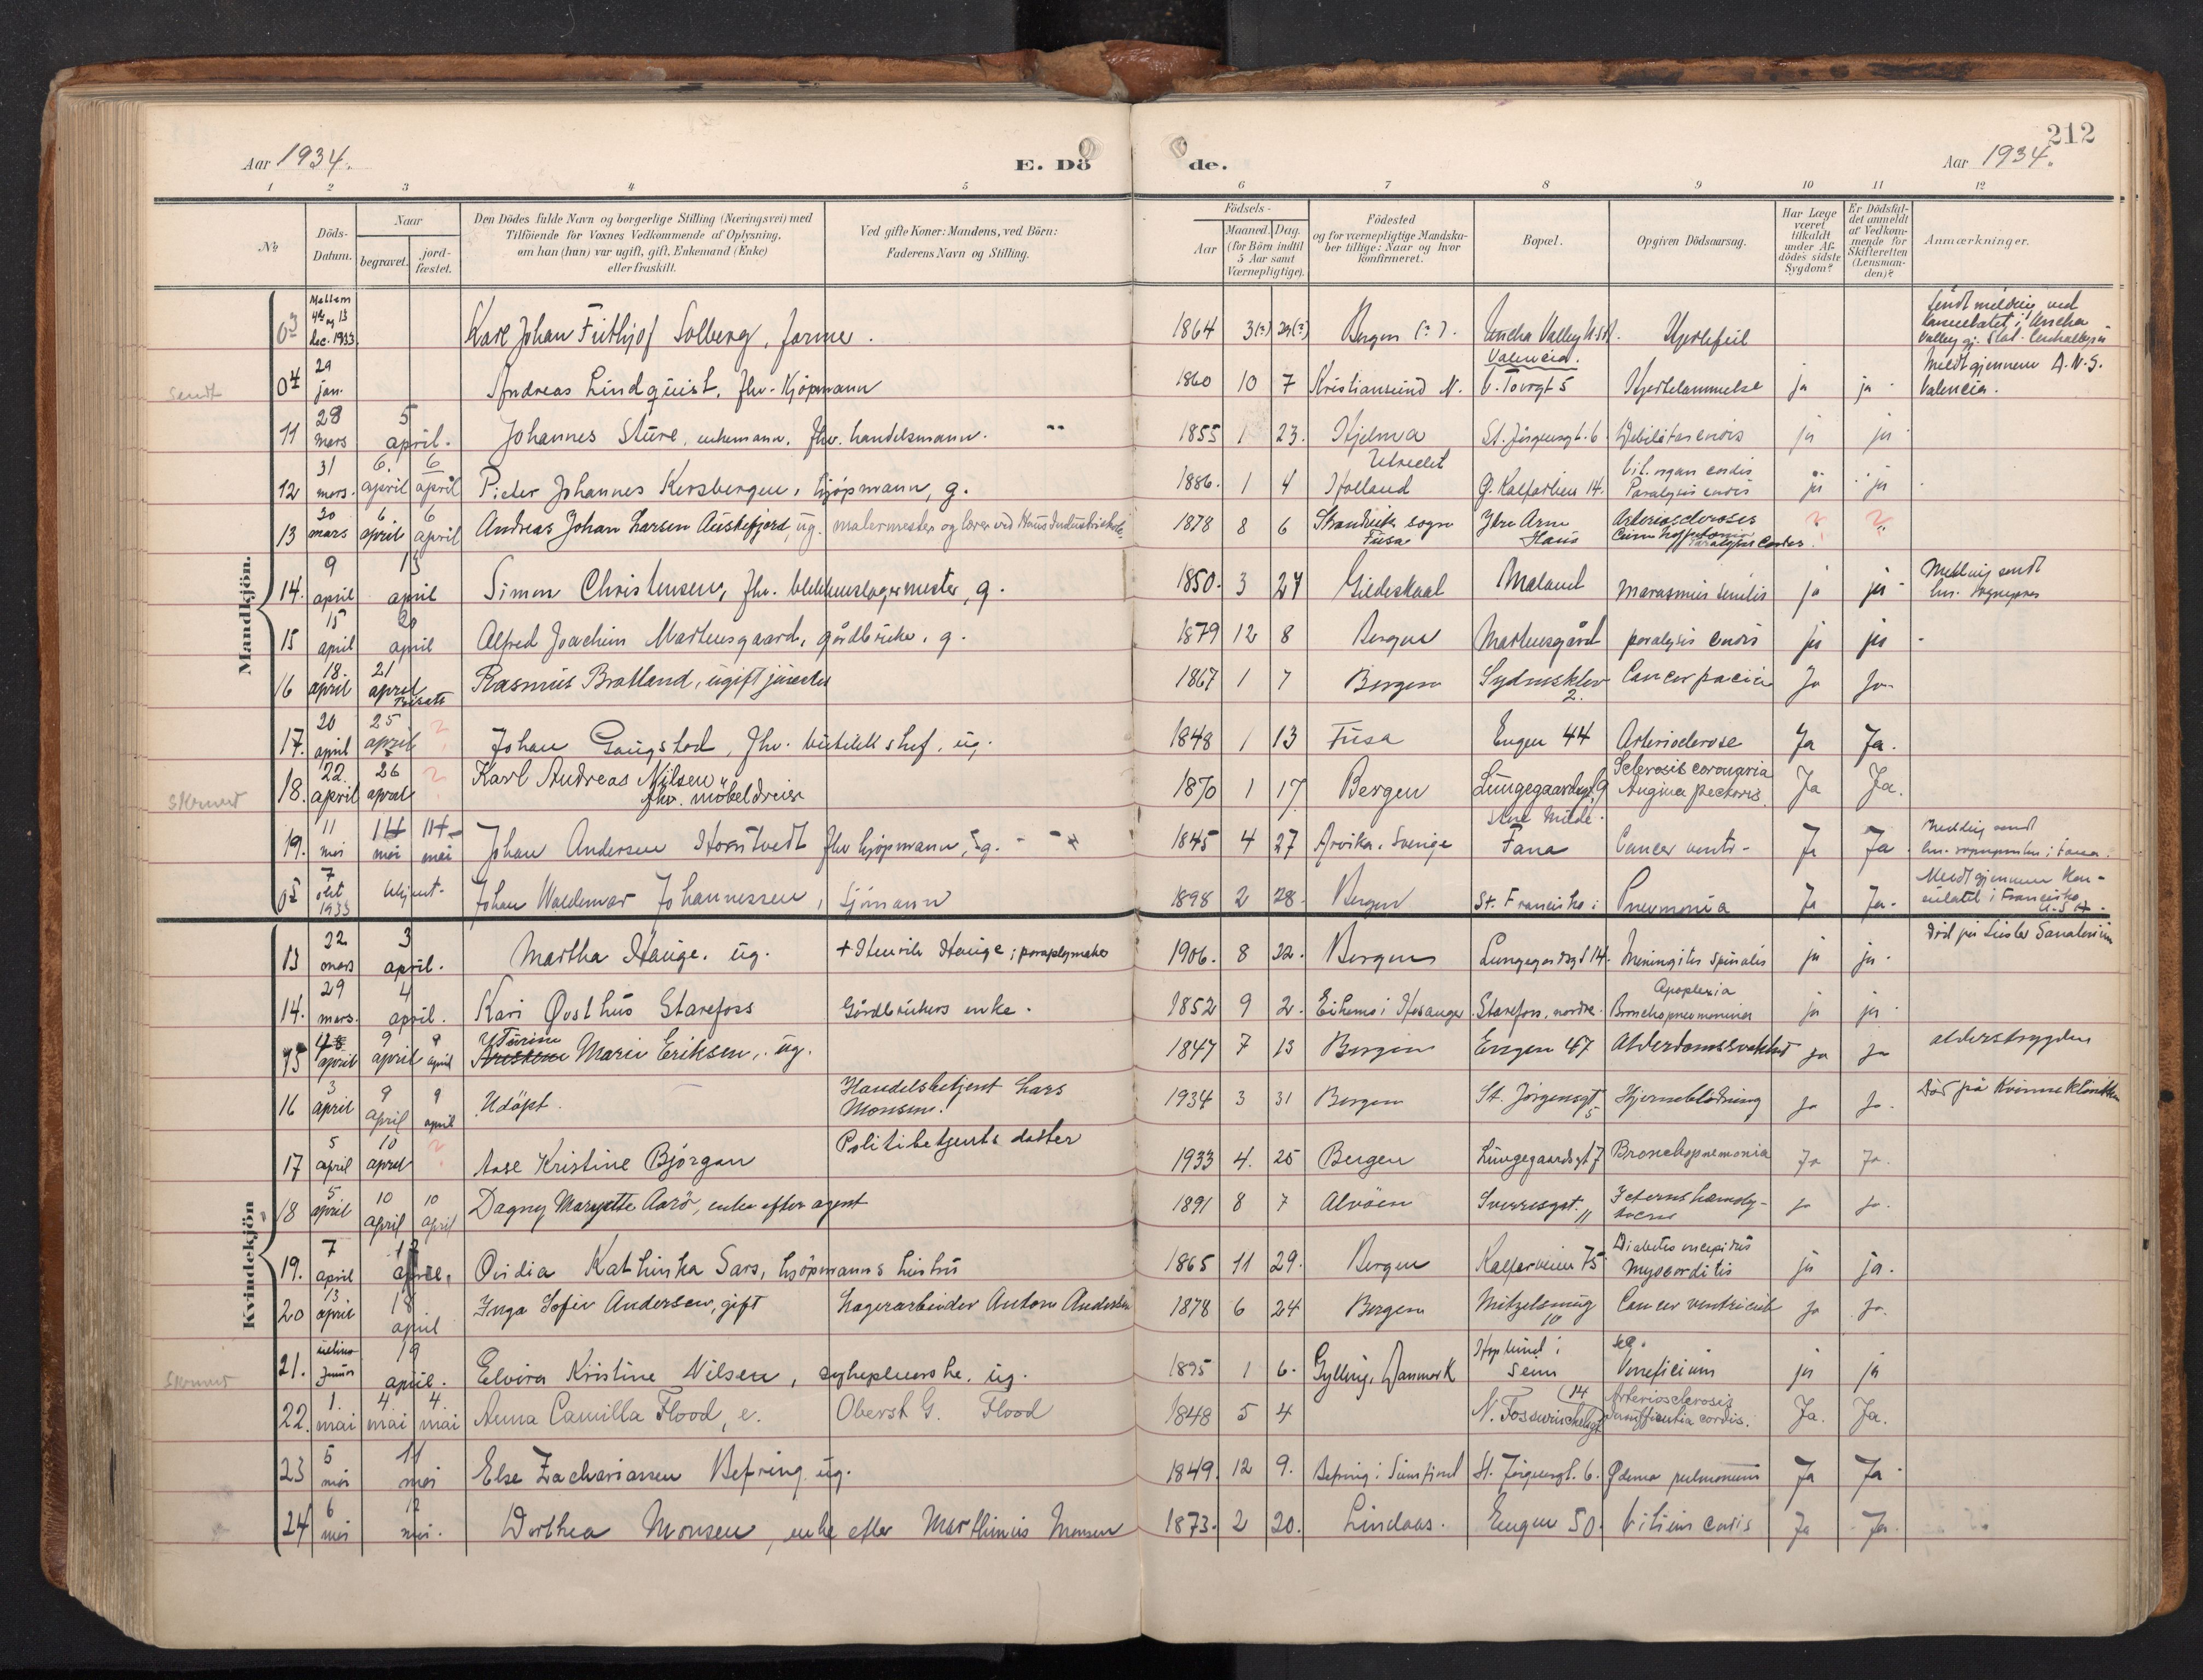 212
Aar 1934.
E. Dö
de.
Aar 1934.
1 2 3 4 5 6 7 8 9 10 11 12
No
Döds-Datum.
Naar
begravet.
jord-fæstet.
Den Dödes fulde Navn og borgerlige Stilling (Næringsvei) med
Tilföiende for Voxnes Vedkommende af Oplysning,
om han (hun) var ugift, gift, Enkemand (Enke)
eller fraskilt.
Ved gifte Koner: Mandens, ved Börn:
Faderens Navn og Stilling.
Födsels-
Aar
Maaned. Dag.
(for Börn indtil
5 Aar samt
Værnepligtige).
Födested
og for værnepligtige Mandska-
ber tillige: Naar og hvor
konfirmeret.
Bopæl.
Opgiven Dödsaarsag.
Har Læge
været
tilkaldt
under Af-
dödes sidste
Sygdom?
Er Dödsfal-
det anmeldt
af Vedkom-
mende for
Skifteretten
(Lensman-
den)?
Anmærkninger.
Mandkjön.
03 Mellem 4de og 13 dec. 1933 Karl Johan Frithjof Solberg, farmer. 1864 3(?) 29(?) Bergen (?). Hjertefeil
Sendt 04 29 jan. Andreas Lindquist, fhv. kjöpmann 1860 10 7 Kristiansund N. V. Torvgt 5 Hjertelammelse ja ja Meldt gjennem A.N.S. Valencia.
11 28 mars 5 april. Johannes Sture, enkemann, fhv. handelsmann. 1855 1 23. Hjelma St. Jörgensgt. 6 ja ja
12 31 mars. 6. april 6 april Pieter Johannes Kersbergen, kjöpmann, g. 1886. 1 4 Utrecht Holland G. Kalfarlien 14. Vit. organ cordis Paralysis cordis ja ja
13 30 mars 6 april 6 april Andreas Johan Larsen Austefjord, ug. malermester og lærer ved Haus Industriskole 1878 8 6 Strandvik sogn Fusa Ytre Arna Haus Arteriosclerosis ? ?
14. 9 april april Simon Christensen, fhv. blikkenslagermester, g. 1850. 3 27 Gildeskaal Marasmus senilis ja ja Melding sendt
15 15 april 20 april Alfred Joachim Martensgaard, gårdbruker, g. 1879 12 8 Bergen Martensgård paralysis cordis ja ja
16 18. april 21 april Privat Rasmus Bratland, ugift 1867 1 7 Bergen 2. Ja Ja
17. 20 april 25 april ? Johan Gaugstad, fhv. ug. 1848 1 13 Fusa Engen 44 Arteriosclerose Ja Ja.
18. 22 april 26 april ? Karl Andreas Nilsen fhv. möbeldreier 1870 1 17 Bergen Lungegaardsgt 9 Sclerosis coronaria Angina pectoris. Ja Ja.
19. 11 mai 14 mai 14 mai Johan Andersen Horntvedt fhv kjöpmann, g. 1845 4 27 Arvika, Sverige Milde Fana Cancer ventr- Ja Ja
05 7 okt 1933 ukjent. Johan Waldemar Johannessen, sjömann 1898 2 28 Bergen St. Francisko Pneumonia Ja Ja. Meldt gjennem Kon-sulatet i Francisko U.S.A.
Kvindekjön
13 22 mars 3 april. Martha Hauge. ug. + Henrik Hauge; paraplymaker 1906. 8 22. Bergen Meningitis spinalis ja ja Död på Luster Sanatorium
14. 29 mars. 4 april. Kari Øvsthus Starefoss Gårdbrukers enke. 1852 9 2. Eikemo i Hosanger Starefoss, nordre. Apoplexia Bronchopneumonia ja ja
15 april 9 april 9 april Marie Eriksen, ug. 1847 7 13 Bergen Engen 47 Alderdomssvakhet ja ja alderstrygden
16 3 april 9 april 9 april Udöpt. Handelsbetjent Lars Monsen. 1934 3 31 Bergen St. Jörgensgt 5 Hjerneblödning Ja Ja. Död på Kvinneklinikken
17 5 april 10 april ? Aase Kristine Björgan Politibetjents datter 1933 4. 25 Bergen Lungegaardsgt 7 Bronchopnemonia Ja Ja.
18 5 april 10 april 10 april Dagny Margrette Aarö, enke efter agent 1891 8 7 Alvöen Sverresgt. 11 Ja Ja.
19. 7 april april. Ovidia Kathinka Sars, kjöpmanns hustru 1865 11 29. Bergen Kalfarveien 75 Myocorditis ja ja.
20 13 april 18 april Inga Sofie Andersen, gift Lagerarbeider Anton Andersen 1878 6 24 Bergen 10 Cancer ventriculi Ja Ja.
Skrevet 21. 19 april. Elvira Kristine Nilsen, sykepleierske. ug. 1895 1 6. Gylling, Danmark Hopland i Seim Veneficium ja ja
22. 1. mai 4. mai 4. mai Anna Camilla Flood, e. Oberst G. Flood 1848 5 4 14 Arteriosclerosis Insufficientia cordis. Ja. Ja.
23 5 mai 11 mai Else Zachariassen Befring ug. 1849. 12 9. Befring i Sunnfjord St. Jörgensgt. 6. Ødema pulmonum Ja Ja
24 6 mai 12 mai. Dorthea Monsen, enke efter Marthinius Monsen 1873. 2 20. Lindaas. Engen 50. Vitium cordis Ja Ja